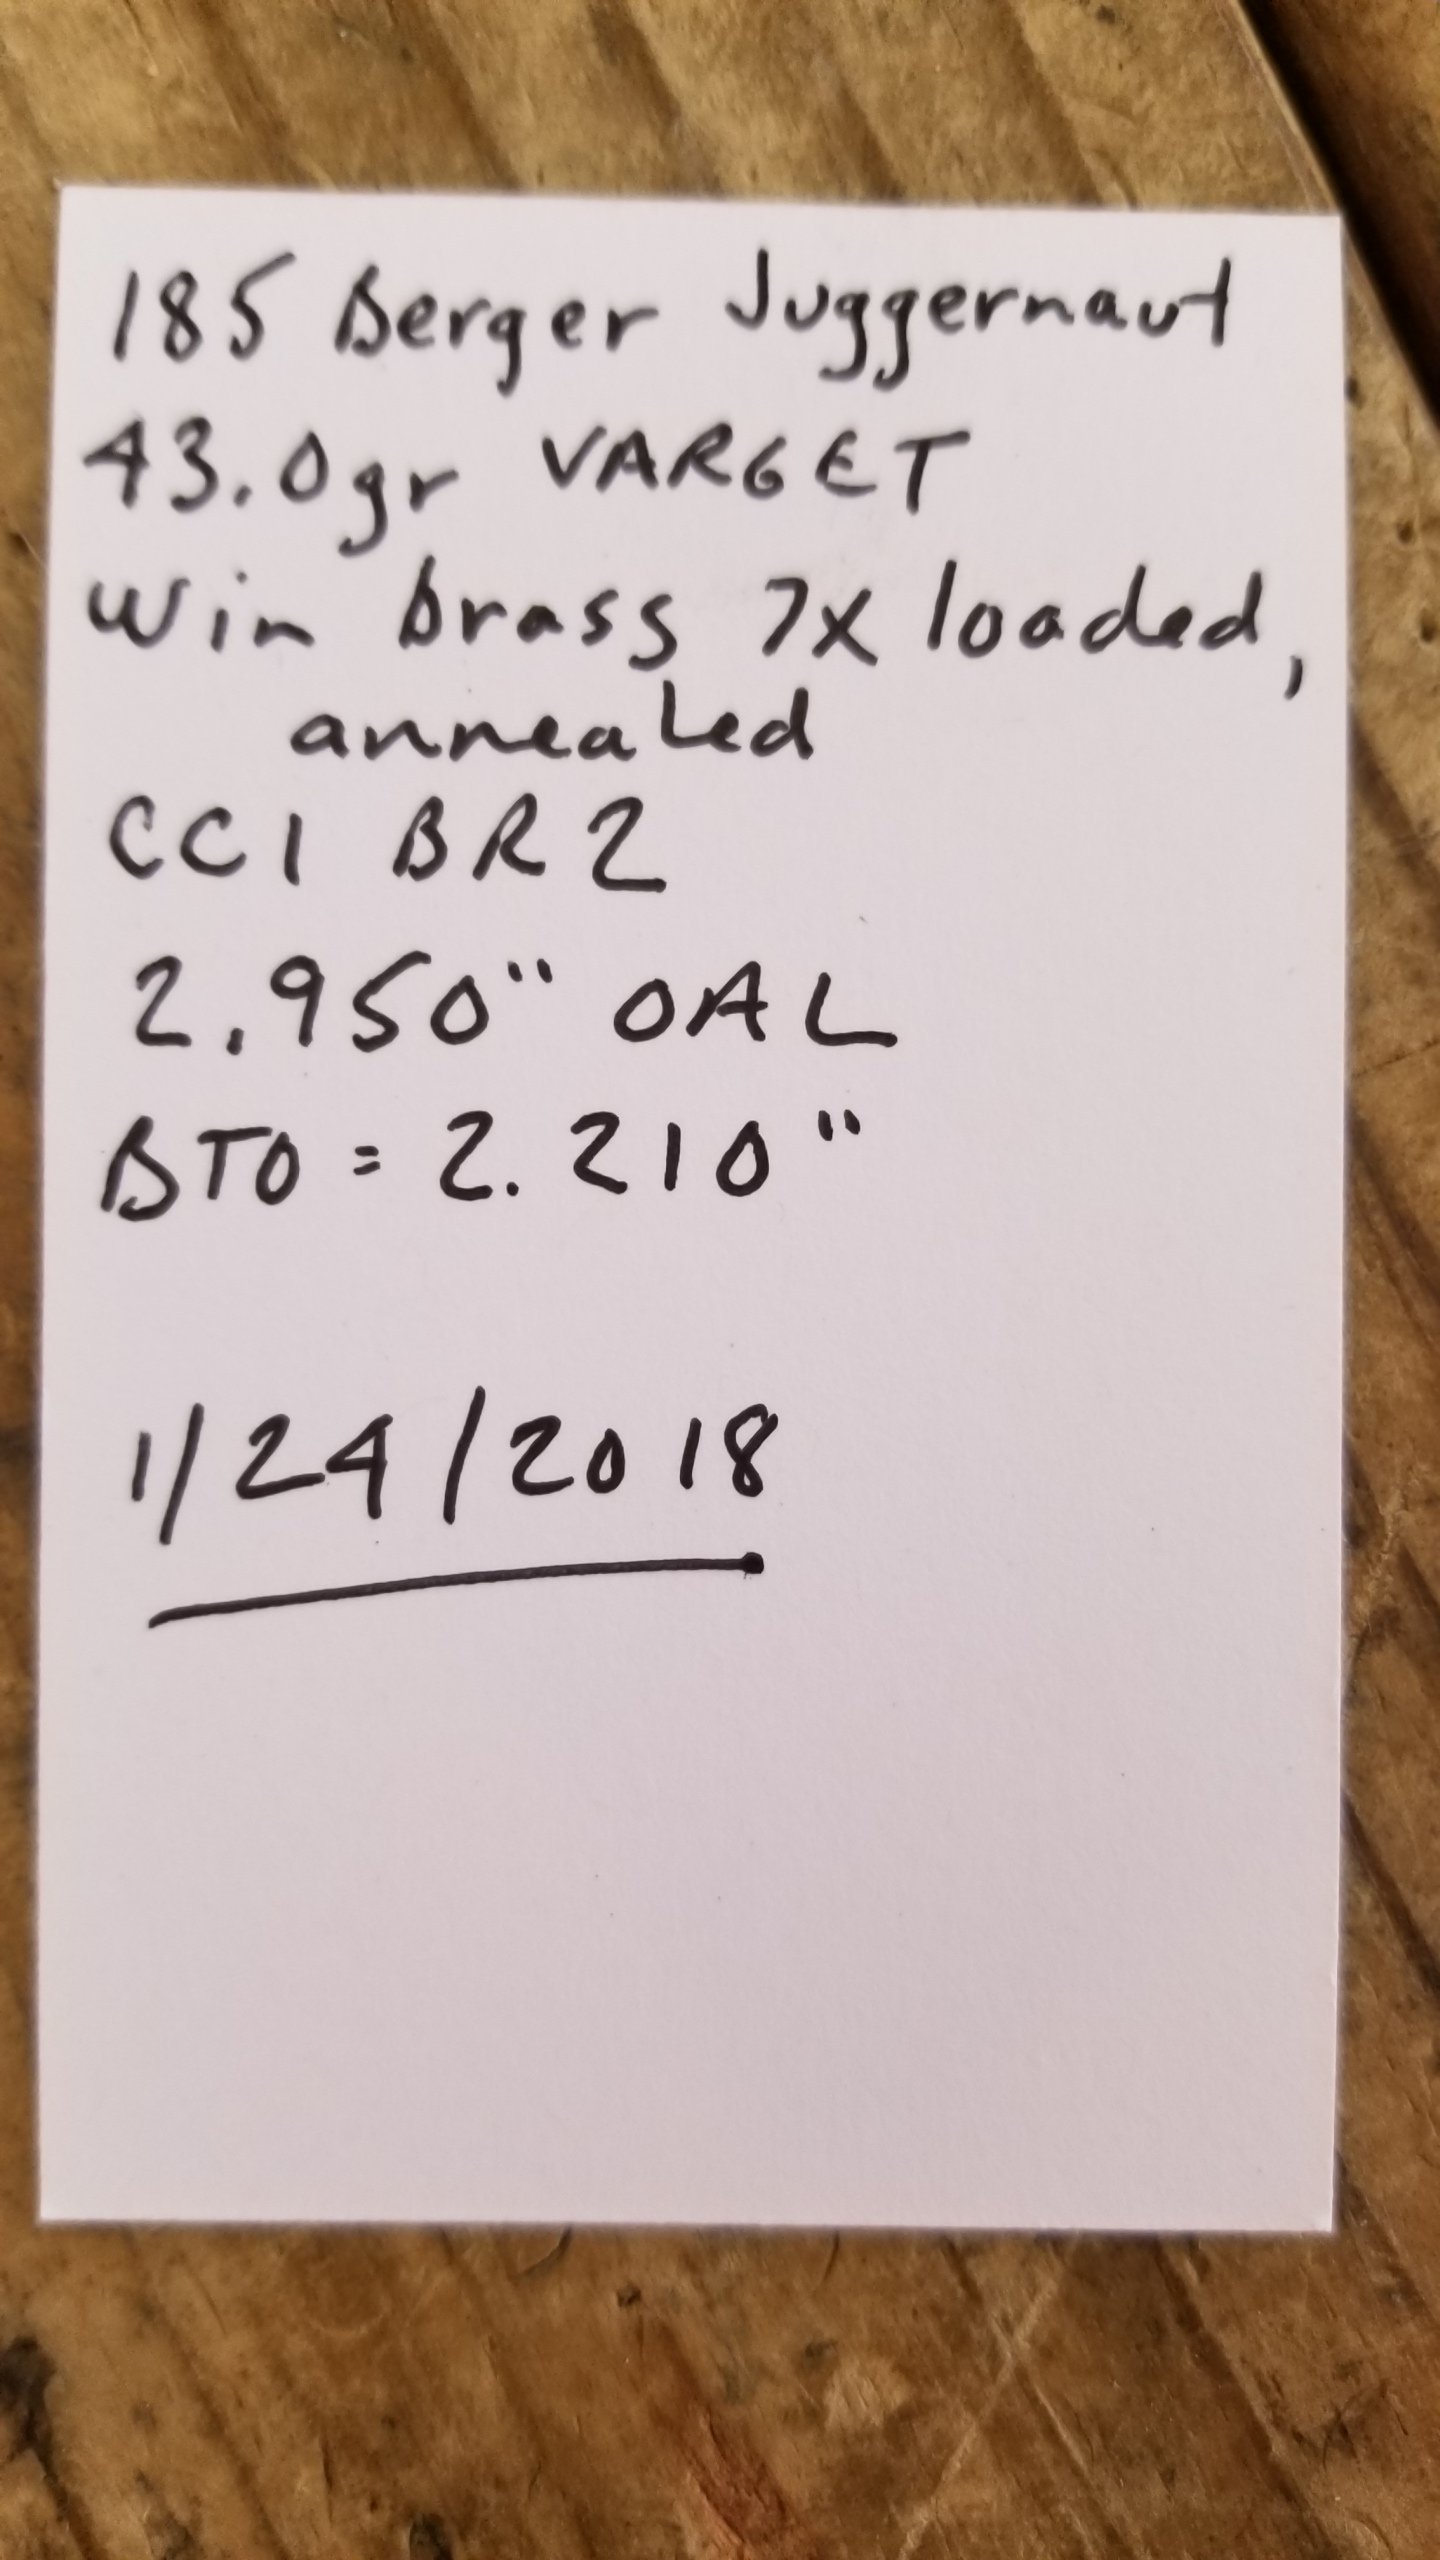 185 Berger Juggernaut
43.0gr VARGET
Win brass 7X loaded,
annealed
CCI BR2
2.950" OAL
BTO = 2.210"
1/24/2018